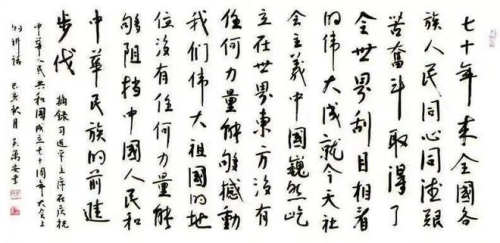 七十年来全國各
族人民同心同德艰
苦奮斗取得了
令世界刮目相看
的伟大成就今天社
会主義中國巍然屹
立在世界東方没有
任何力量能够撼動
我们伟大祖國的地
位没有任何力量能
够阻挡中國人民和
中華民族的前進
步伐
摘録习近平主席在庆祝
中華人民共和國成立七十周年大会上
的讲话 己亥秋月